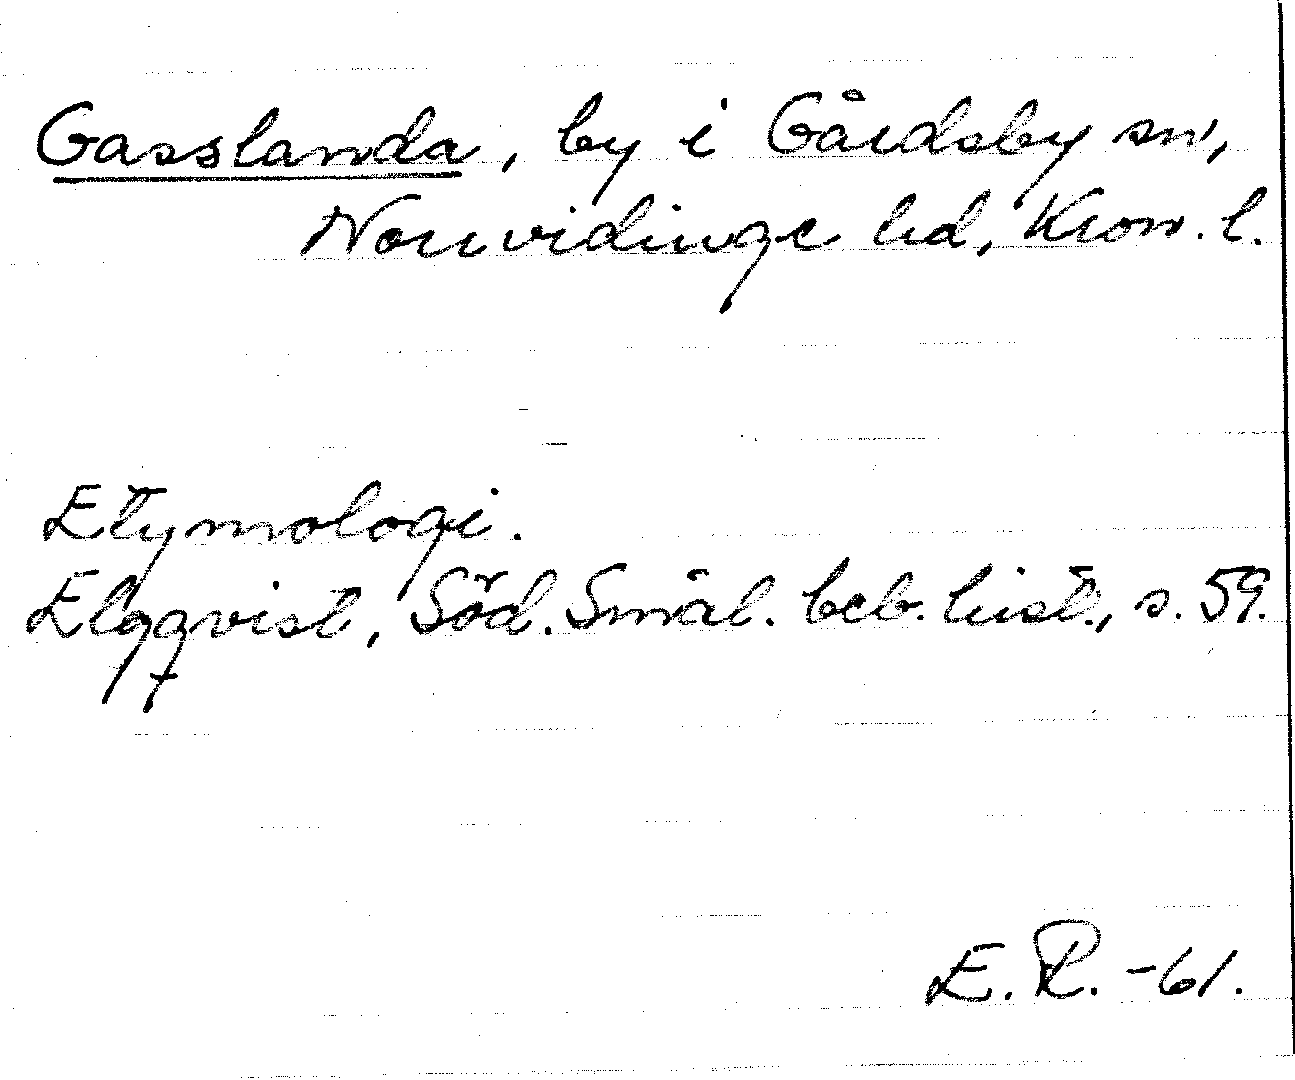 Gasslanda, by i Gårdsby sn,
Norrvidinge hd, Kron. l.
Etymologi.
Elgqvist, Söd. Smål. beb. hist., s. 59.
E. R. -61.